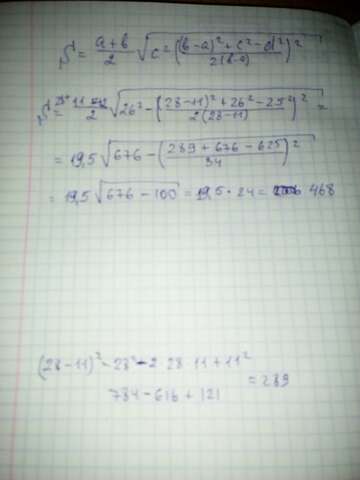 S = (a+b)/2 √(c² = ((b-a)² + c² - d²)/(2(b-a)))²
S = (28+11)/2 √(26² - ((28-11)² + 26² - 25²)/(2(28-11)))² =
= 19,5 √(676 - ((289 + 676 - 625)/34)²
= 19,5 √(676 - 100) = 19,5 · 24 = 468
(28-11)² - 28² - 2 · 28 · 11 + 11²
784 - 616 + 121 = 289